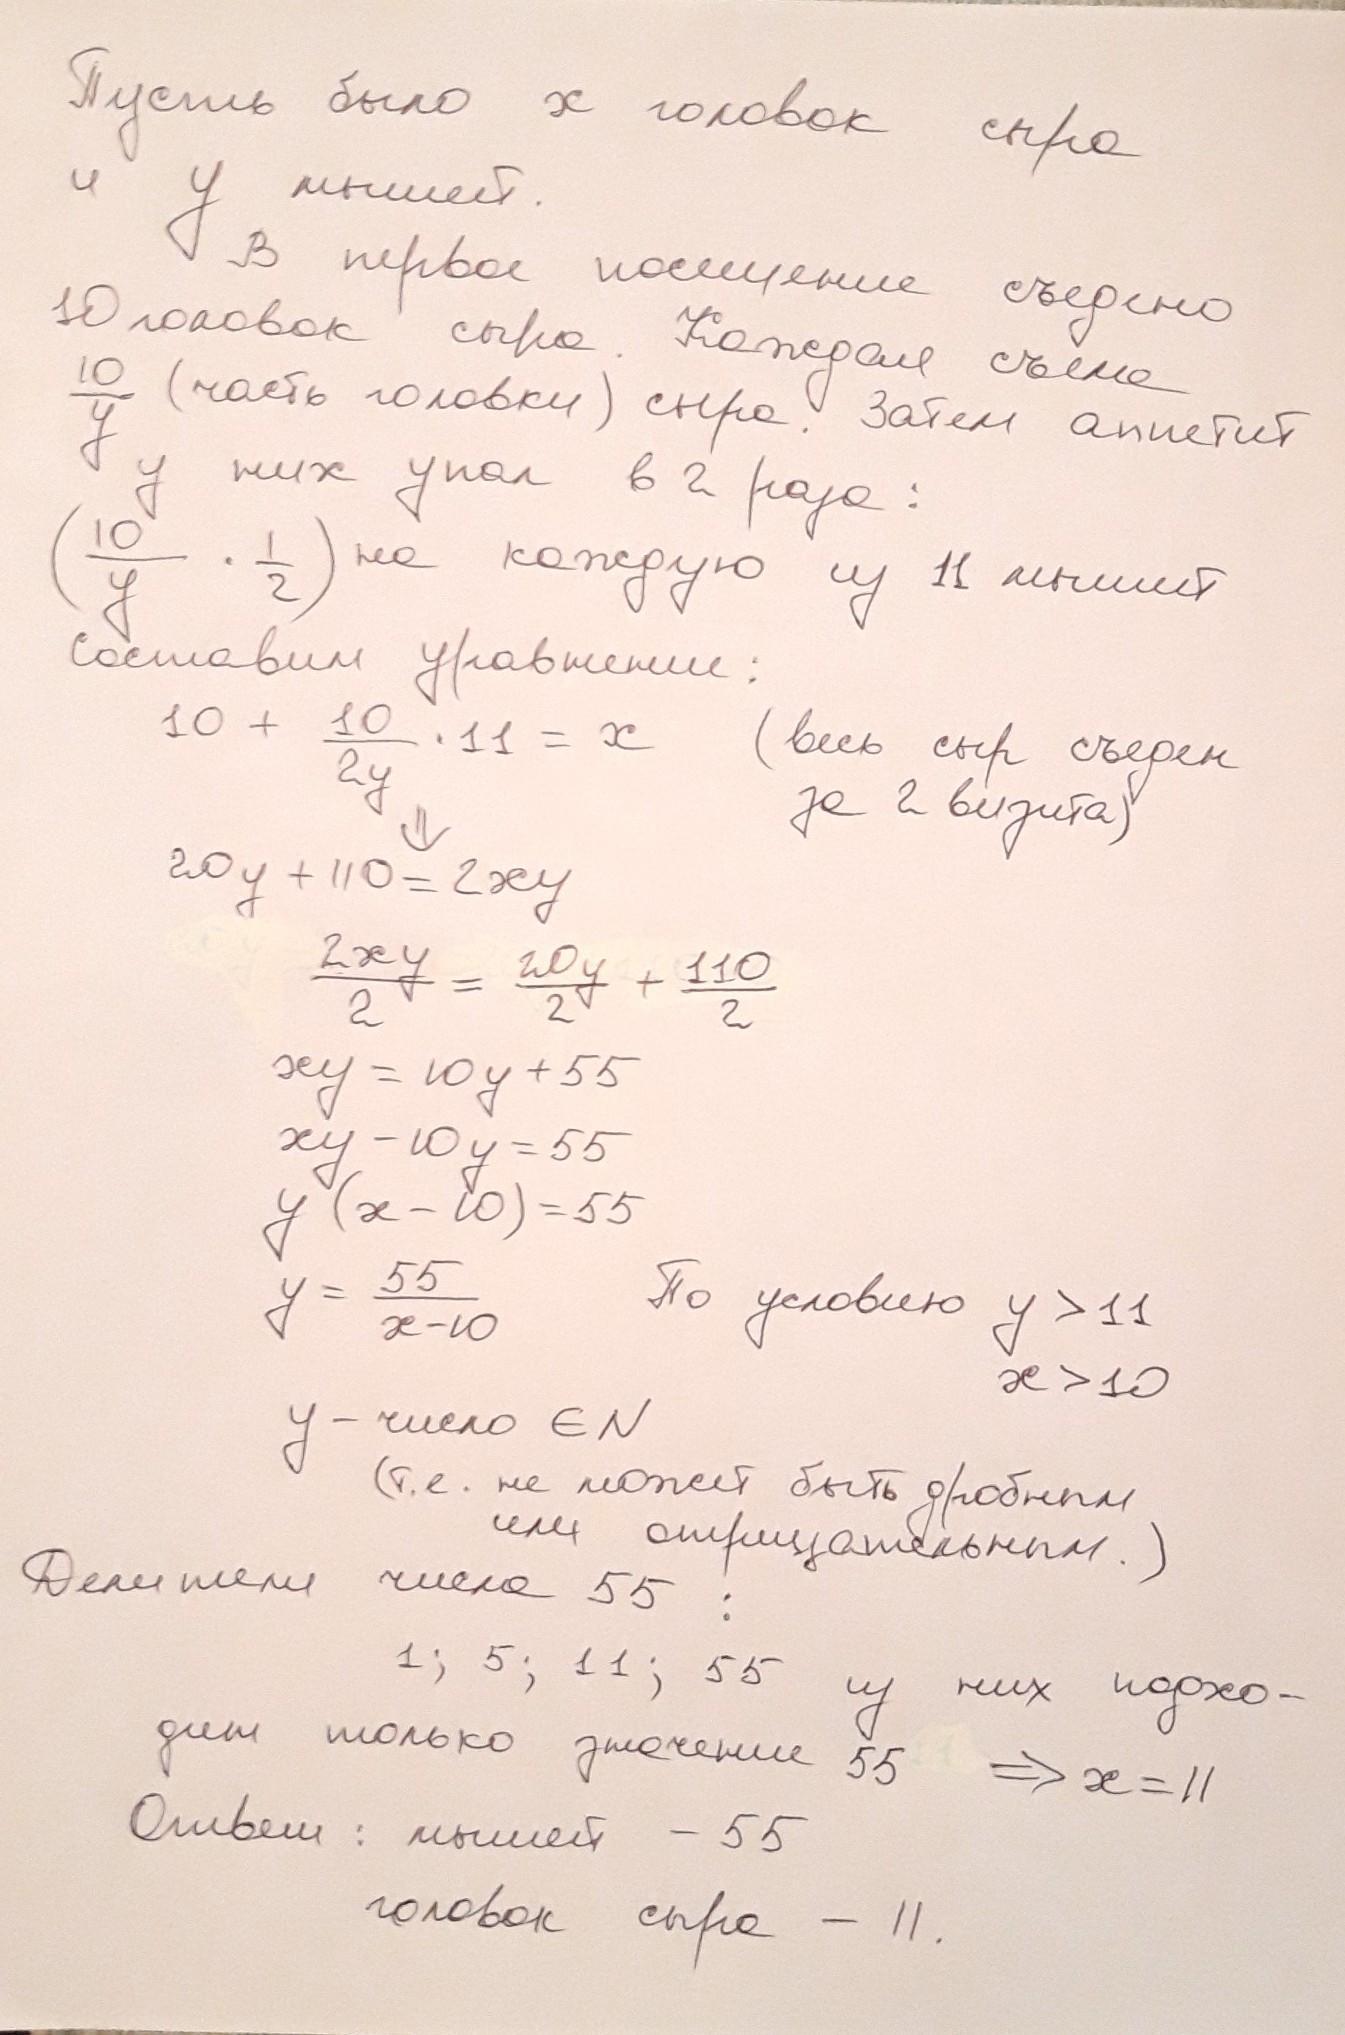 Пусть было x головок сыра
и y мышей.
В первое посещение съедено
10 головок сыра. Каждая съела
10/y (часть головки) сыра. Затем аппетит
у них упал в 2 раза:
(10/y · 1/2) на каждую из 11 мышей
Составим уравнение:
10 + 10/2y · 11 = x (весь сыр съеден
за 2 визита)
⇓
20y + 110 = 2xy
2xy/2 = 20y/2 + 110/2
xy = 10y + 55
xy - 10y = 55
y (x - 10) = 55
y = 55/x-10 По условию y > 11
x > 10
y - число ∈ N
(т.е. не может быть дробным
или отрицательным.)
Делители числа 55 :
1; 5; 11; 55 из них подхо-
дит только значение 55 ⇒ x = 11
Ответ: мышей - 55
головок сыра - 11.